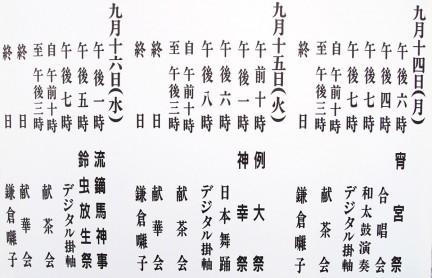 九月十四日(月)
午後六時 宵宮祭
午後四時 合唱会
午後七時 和太鼓演奏
午後七時 デジタル掛軸
自午前十時
至午後三時 献茶会
終日 献華会
終日 鎌倉囃子
九月十五日(火)
午前十時 例大祭
午後一時 神幸祭
午後六時 日本舞踊
午後八時 デジタル掛軸
自午前十時
至午後三時 献茶会
終日 献華会
終日 鎌倉囃子
九月十六日(水)
午後一時 流鏑馬神事
午後五時 鈴虫放生祭
午後七時 デジタル掛軸
自午前十時
至午後三時 献茶会
終日 献華会
終日 鎌倉囃子